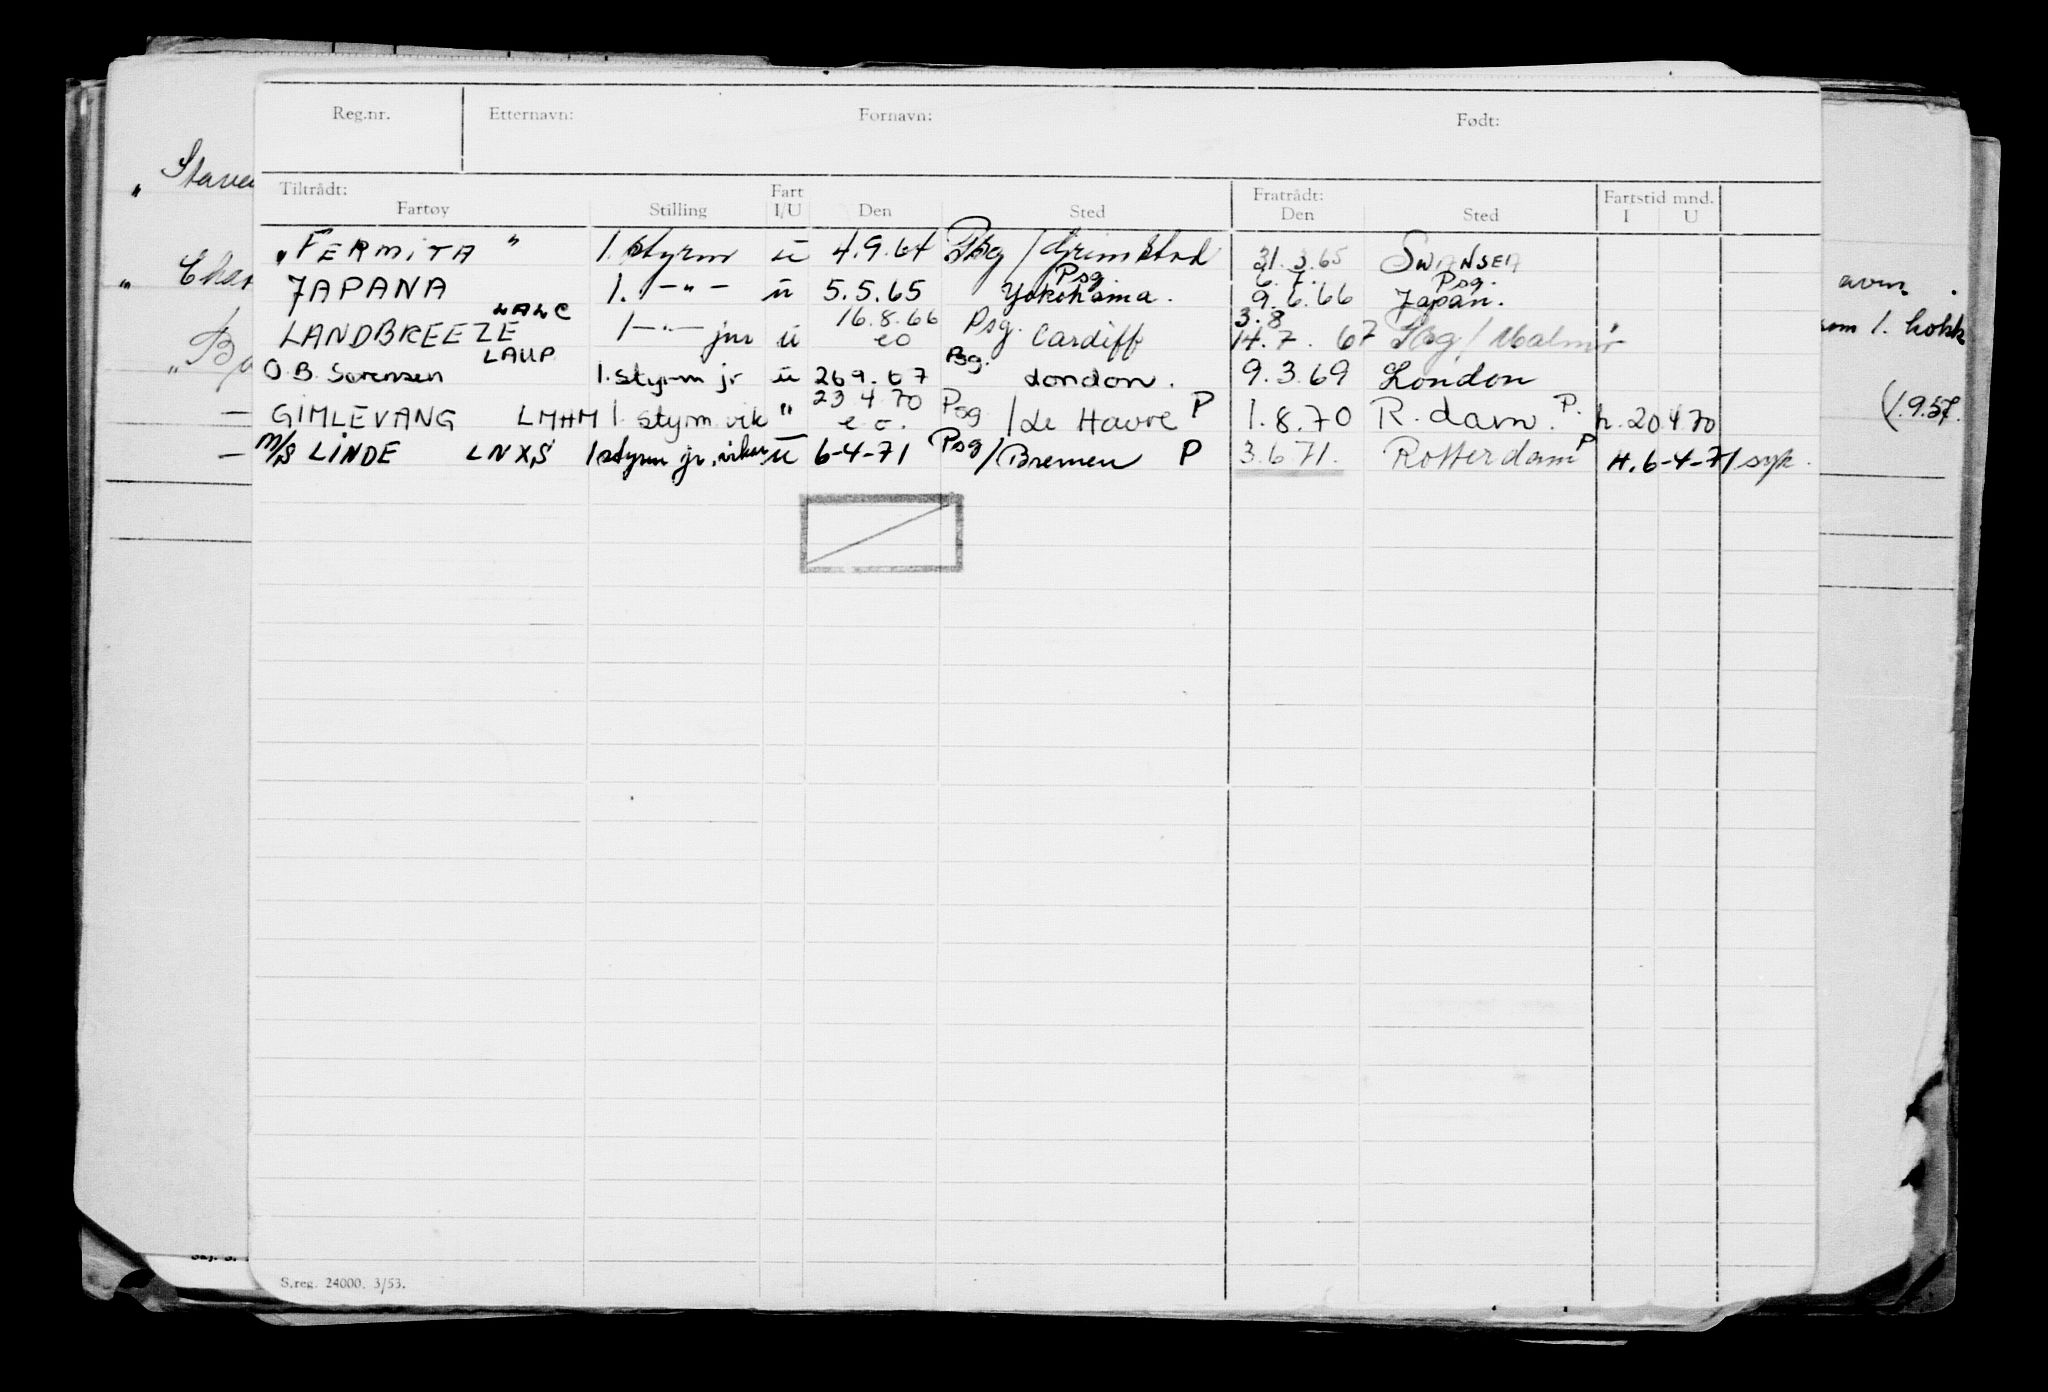 Reg.nr. Etternavn: Fornavn: Født:
Tiltrådt: Fart Fratrådt: Fartstid mnd.
Fartøy Stilling I/U Den Sted Den Sted I U
"FERMITA" 1. styrm u 4.9.64 Psg / Grimstad 31.3.65 SWANSEA
JAPANA 1. -"- u 5.5.65 Psg Yokohama. 6.7. 9.6.66 Psg. Japan.
LANDBREEZE LALC 1 -"- jnr u 16.8.66 eo Psg. Cardiff 3.8 14.7.67 Psg / Malmö
O.B. Sørensen LAUP 1. styrm jr u 26 9. 67 Psg. London. 9.3.69 London
— GIMLEVANG LMHM 1. styrm vik " 23 4 70 e.o. Psg / Le Havre P 1.8.70 R.dam. P. h. 20 4 70
— M/S LINDE LNXS 1 styrm jr. vikar u 6-4-71 Psg / Bremen P 3.6 71. Rotterdam P H. 6-4-71 syk.
S.reg. 24000. 3/53.
" Stava
" Char
avn.
som 1. kokk
(1.9.57.